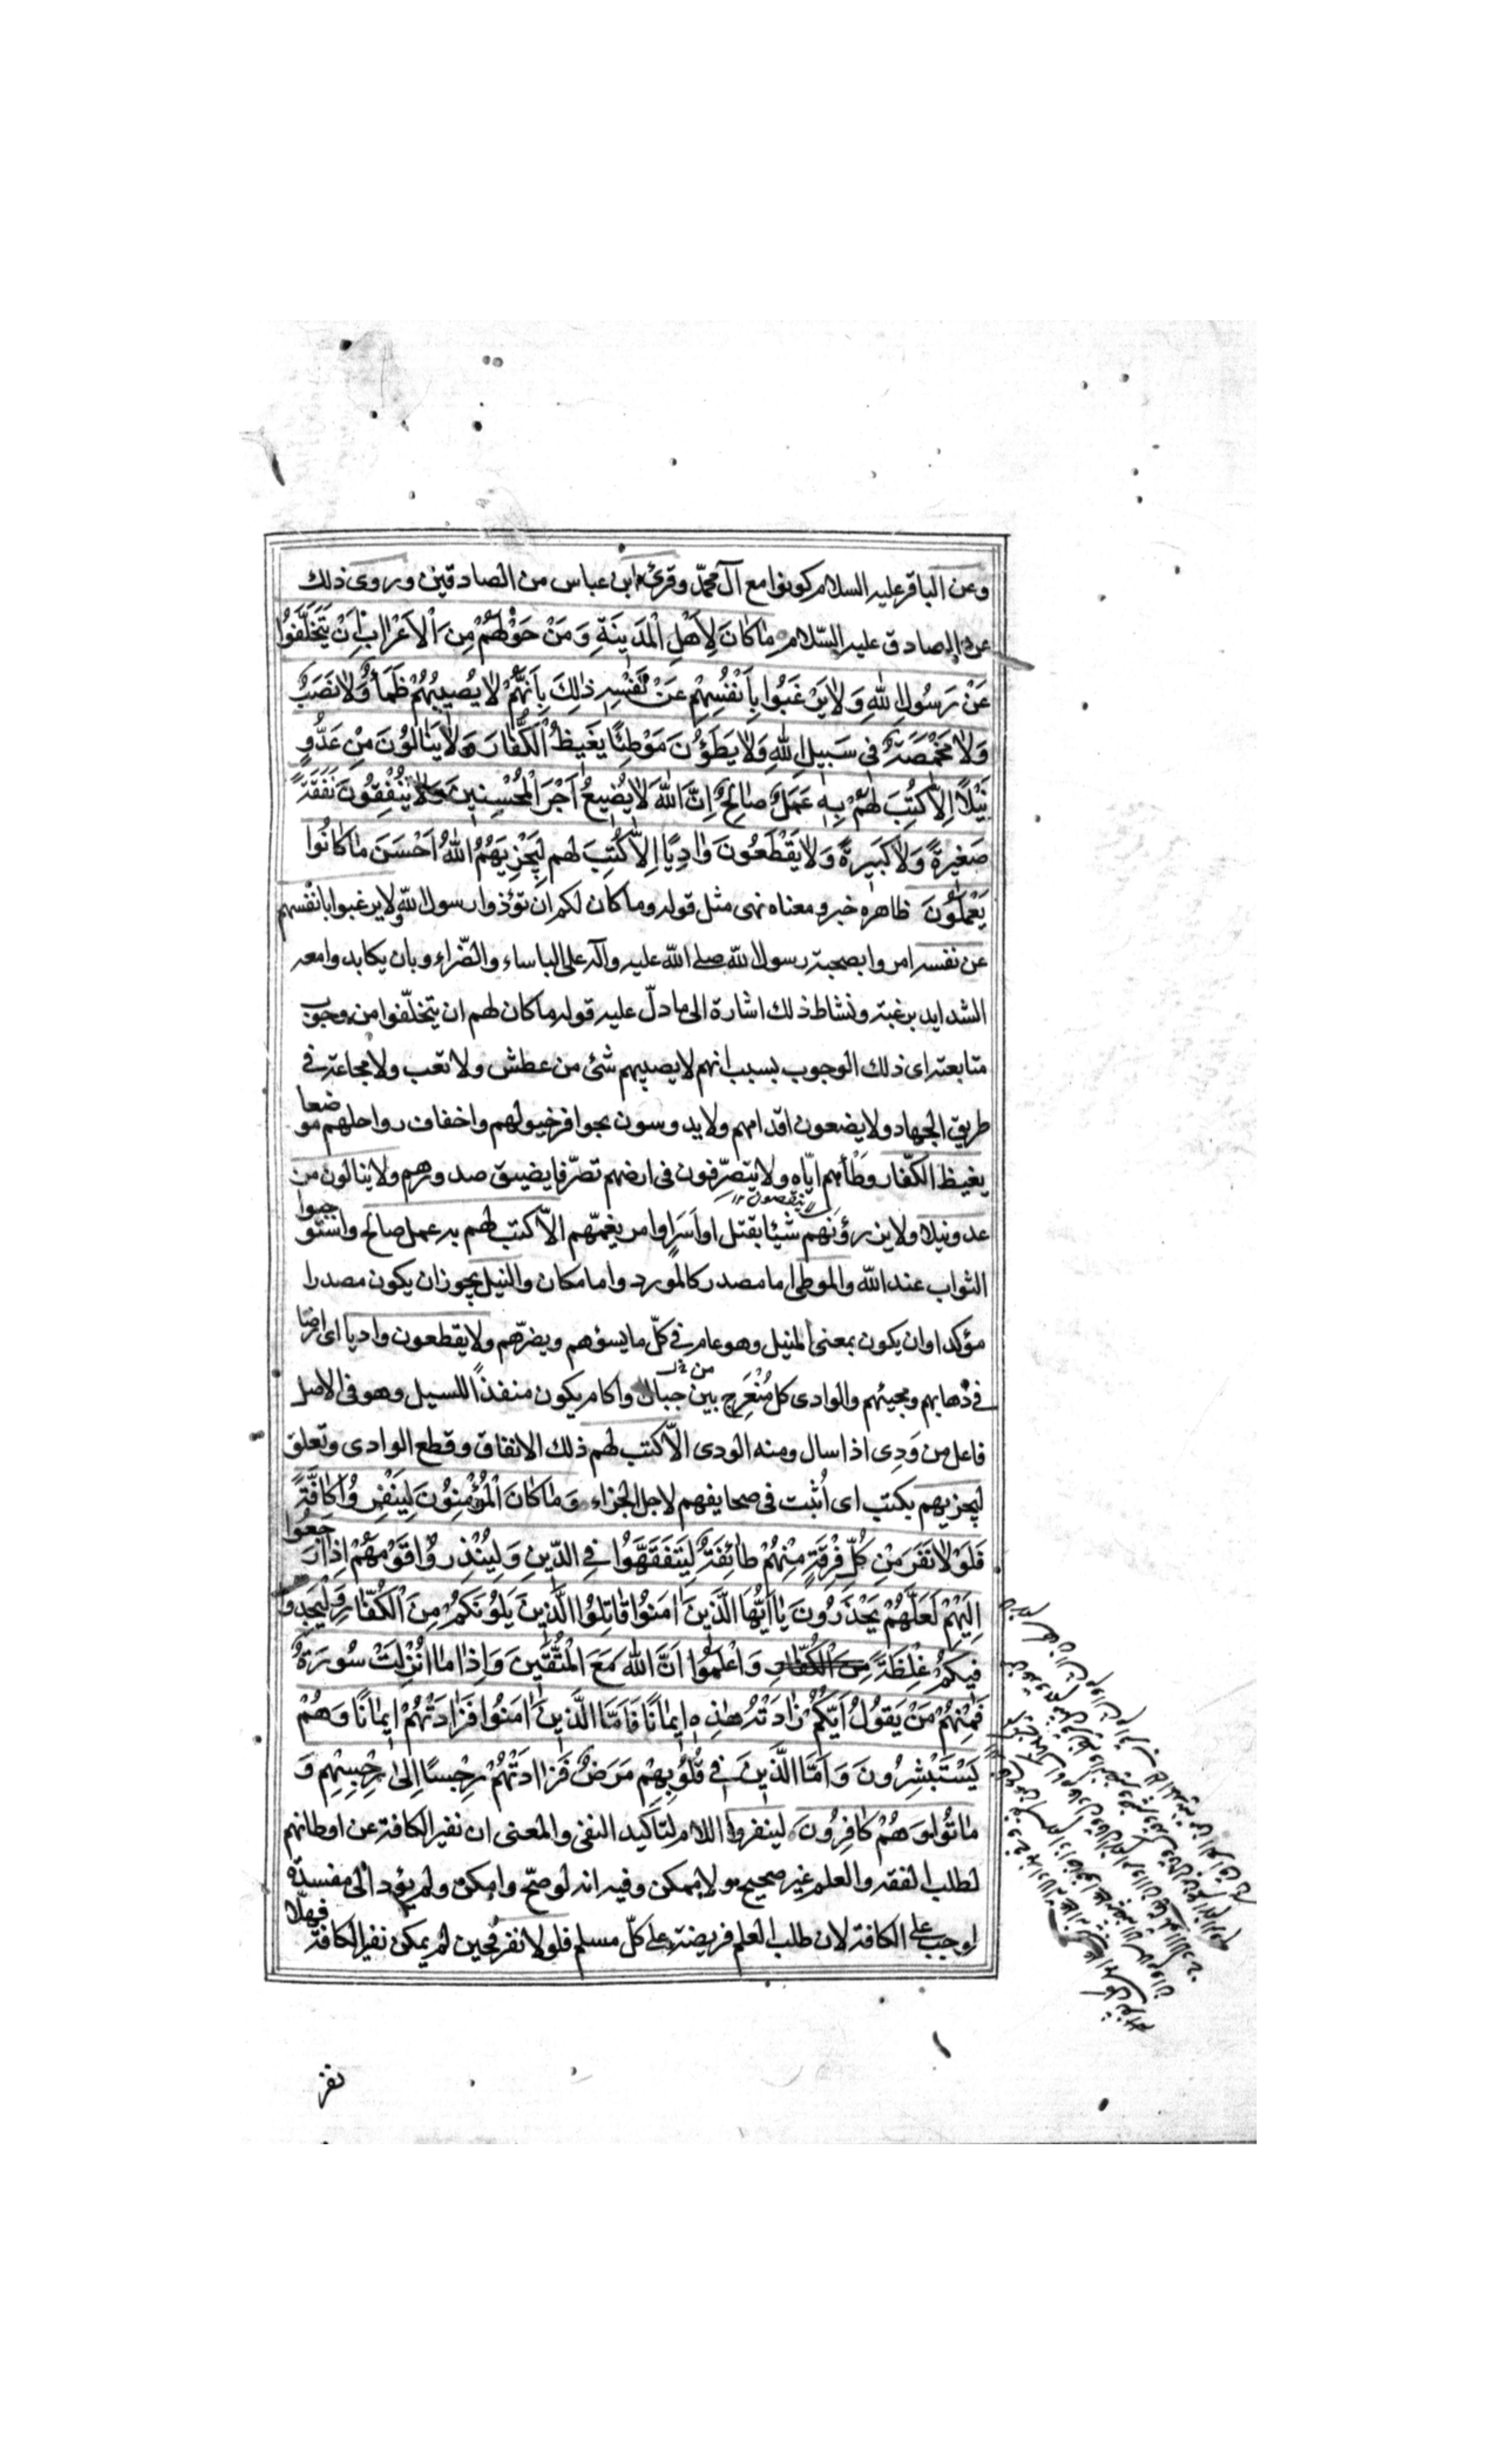 وعن الباقر عليه السلام كونوا مع آل محمّد وقرئ ابن عباس من الصادقين وروى ذلك
عن الصادق عليه السّلام مٰا كٰانَ لِاَهْلِ الْمَدِينَةِ وَمَنْ حَوْلَهُمْ مِنَ الْاَعْرٰابِ اَنْ يَتَخَلَّفُوا
عَنْ رَسُولِ اللّٰهِ وَلٰا يَرْغَبُوا بِاَنْفُسِهِمْ عَنْ نَفْسِهِ ذٰلِكَ بِاَنَّهُمْ لٰا يُصِيبُهُمْ ظَمَأٌ وَلٰا نَصَبٌ
وَلٰا مَخْمَصَةٌ فِى سَبِيلِ اللّٰهِ وَلٰا يَطَؤُنَ مَوْطِئًا يَغِيظُ الْكُفّٰارَ وَلٰا يَنٰالُونَ مِنْ عَدُوٍّ
نَيْلًا اِلّٰا كُتِبَ لَهُمْ بِهِ عَمَلٌ صٰالِحٌ اِنَّ اللّٰهَ لٰا يُضِيعُ اَجْرَ الْمُحْسِنِينَ وَلٰا يُنْفِقُونَ نَفَقَةً
صَغِيرَةً وَلٰا كَبِيرَةً وَلٰا يَقْطَعُونَ وٰادِيًا اِلّٰا كُتِبَ لهم لِيَجْزِيَهُمُ اللّٰهُ اَحْسَنَ مٰا كٰانُوا
يَعْمَلُونَ ظاهره خبر ومعناه نهى مثل قوله وما كان لكم ان تؤذوا رسول اللّه ولا يرغبوا بانفسهم
عن نفسه امروا بصحبة رسول اللّه صلى اللّه عليه وآله على الباساء والضّراء وبان يكابدوا معه
الشدايد برغبة ونشاط ذلك اشارة الى ما دلّ عليه قوله ما كان لهم ان يتخلّفوا من وجوب
متابعته اى ذلك الوجوب بسبب انهم لا يصيبهم شئ من عطش ولا تعب ولا مجاعة فى
طريق الجهاد ولا يضعون اقدامهم ولا يدوسون بحوافر خيولهم واخفاف رواحلهم موضعا
يغيظ الكفّار وطأهم ايّاه ولا يتصرّفون فى ارضهم تصرّفا يضيق صدورهم ولا ينالون من
ينقصون
عدو نيلا ولا يزرؤنهم شيئا بقتل او اَسرٍ او امر يغمّهم الاّ كتب لهم به عمل صالح واستوجبوا
الثواب عند اللّه والموطئ اما مصدر كالمورد واما مكان والنيل يجوز ان يكون مصدرا
مؤكدا وان يكون بمعنى المنيل وهو عام فى كلّ ما يسؤهم ويضرّهم ولا يقطعون واديا اى ارضا
فى ذهابهم ومجيئهم والوادى كل مُنْعَرِجٍ بين جبال واكام يكون منفذًا للسيل وهو فى الاصل
فاعل من وَدِى اذا سال ومنه الودى الاّ كتب لهم ذلك الانفاق وقطع الوادى وتعلق
ليجزيهم بكتب اى اُثبت فى صحايفهم لاجل الجزاء وَمٰا كٰانَ الْمُؤْمِنُونَ لِيَنْفِرُوا كٰافَّةً
فَلَوْلٰا نَفَرَ مِنْ كُلِّ فِرْقَةٍ مِنْهُمْ طٰائِفَةٌ لِيَتَفَقَّهُوا فِى الدِّينِ وَلِيُنْذِرُوا قَوْمَهُمْ اِذٰا رَجَعُوا
اِلَيْهِمْ لَعَلَّهُمْ يَحْذَرُونَ يٰا اَيُّهَا الَّذِينَ اٰمَنُوا قٰاتِلُوا الَّذِينَ يَلُونَكُمْ مِنَ الْكُفّٰارِ وَلْيَجِدُوا
فِيكُمْ غِلْظَةً مِنَ الْكُفّٰارِ وَاعْلَمُوا اَنَّ اللّٰهَ مَعَ الْمُتَّقِينَ وَاِذٰا مٰا اُنْزِلَتْ سُورَةٌ
فَمِنْهُمْ مَنْ يَقُولُ اَيُّكُمْ زٰادَتْهُ هٰذِهِ اِيمٰانًا فَاَمَّا الَّذِينَ اٰمَنُوا فَزٰادَتْهُمْ اِيمٰانًا وَهُمْ
يَسْتَبْشِرُونَ وَاَمَّا الَّذِينَ فِى قُلُوبِهِمْ مَرَضٌ فَزٰادَتْهُمْ رِجْسًا اِلىٰ رِجْسِهِمْ وَ
مٰاتُوا وَهُمْ كٰافِرُونَ لينفروا اللام لتأكيد النفى والمعنى ان نفير الكافة عن اوطانهم
لطلب الفقه والعلم غير صحيح ولا ممكن وفيه انه لو صحّ وامكن ولم يؤد الى مفسدة
لوجب على الكافة لان طلب العلم فريضة على كلّ مسلم فلولا نفر فحين لم يمكن نفير الكافة فهلّا
نفر